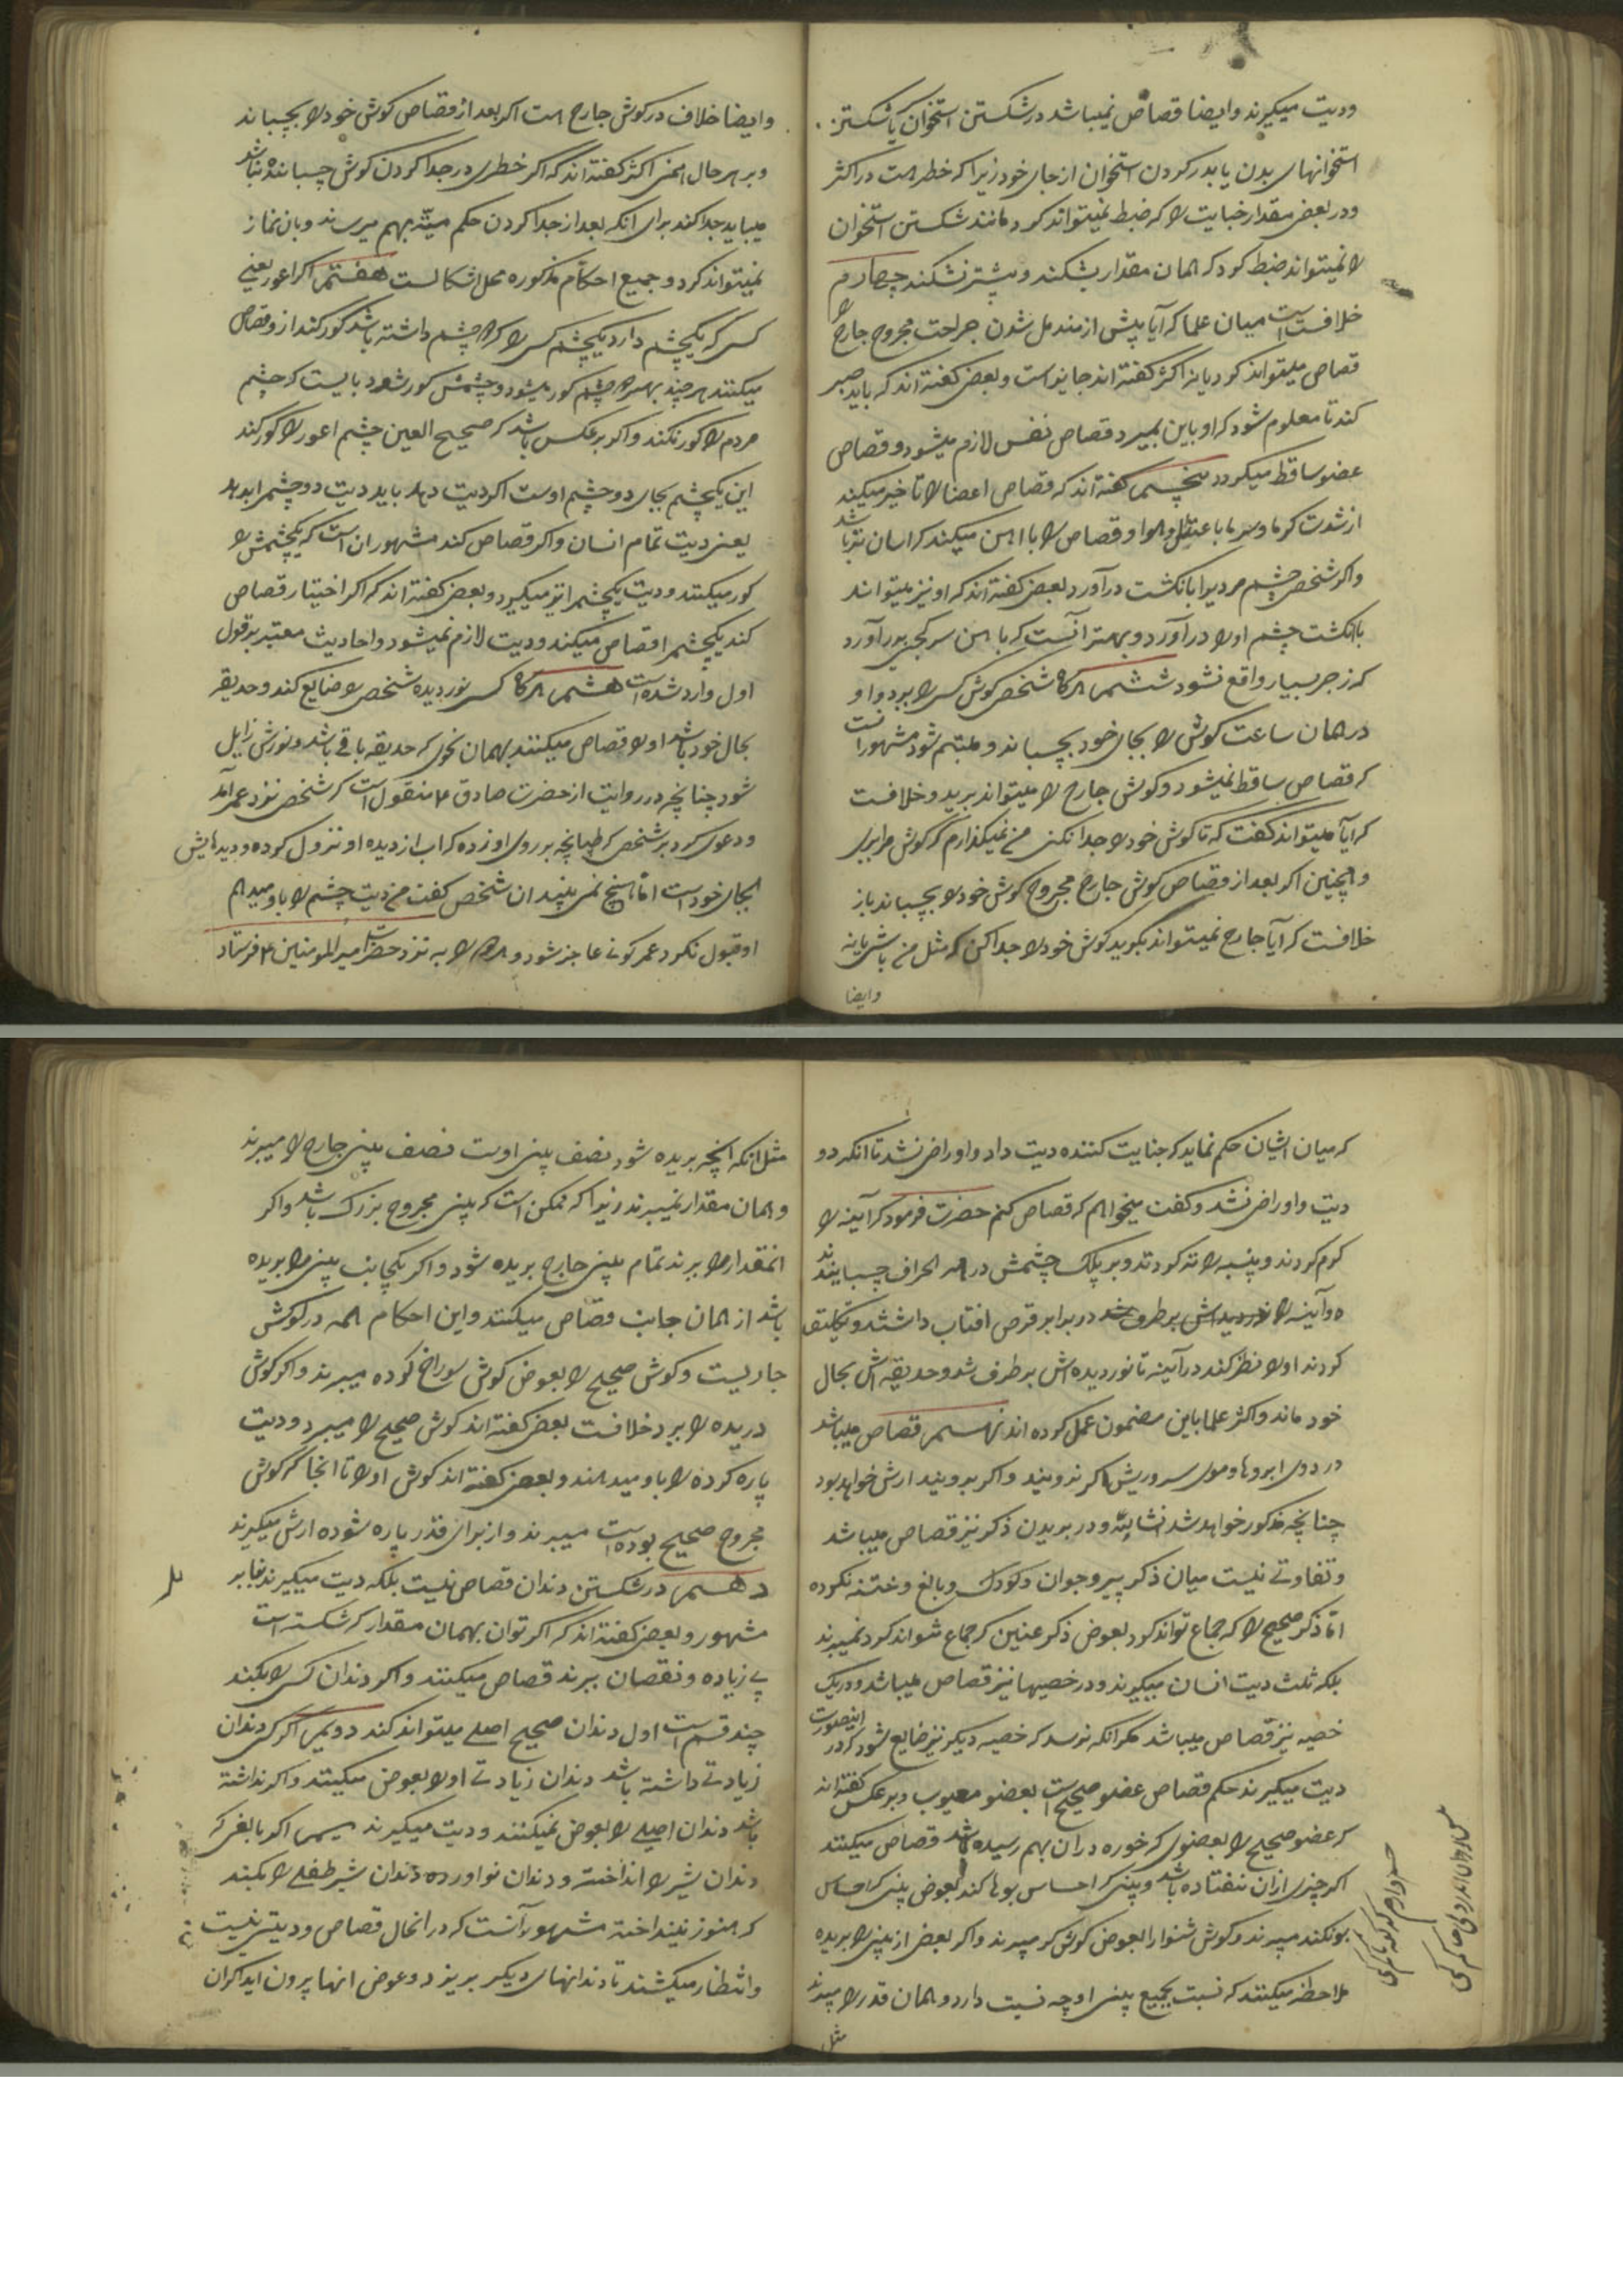 ودیت میکیرند وایضا قصاص نمیباشد در شکستن استخوان یا شکستن
استخوانهای بدن یا بدر کردن استخوان از جای خود زیرا که خطر است در اکثر
ودر بعضی مقدار جنایت را که ضبط نمیتواند کرد مانند شکستن استخوان
را نمیتواند ضبط کرد که همان مقدار بشکند و بیشتر نشکند چهارم
خلافست میان علما که آیا پیش از مندمل شدن جراحت مجروح جارح را
قصاص میتواند کرد یا نه اکثر کفته اند جایز است وبعضی کفته اند که باید صبر
کند تا معلوم شود که اکر باین بمیرد قصاص نفس لازم میشود و قصاص
عضو ساقط میکردد پنجم کفته اند که قصاص اعضا را تاخیر میکند
از شدت کرما وسرما با عتدال هوا و قصاص را با آهن میکند که اسان تر باشد
واکر شخصی چشم مردیرا بانکشت درآورد بعضی کفته اند که او نیز میتواند
بانکشت چشم او را درآورد و بهتر آنست که با آهن سر کجی بدرآورد
که زجر بسیار واقع نشود ششم هرکاه شخصی کوش کسی را ببرد و او
در همان ساعت کوشش را بجای خود بچسباند و ملتئم شود مشهور انست
که قصاص ساقط نمیشود و کوش جارح را میتواند برید وخلافست
که ایا میتواند کفت که تا کوش خود را جدا نکنی من نمیکذارم که کوش مرا ببری
وهمچنین اکر بعد از قصاص کوش جارح مجروح کوش خود را بچسباند باز
خلافست که آیا جارح نمیتواند بکوید کوش خود را جدا کن که مثل من باشی یا نه
وایضا
وایضا خلاف در کوش جارح است اکر بعد از قصاص کوش خود را بچسباند
وبر هر حال اکثر کفته اند که اکر خطری در جدا کردن کوش چسبانده نباشد
میباید جدا کند برای آنکه بعد از جدا کردن حکم میته بهم میرساند وبان نماز
نمیتواند کرد و جمیع احکام مذکوره محل اشکالست هفتم اکر اعور یعنی
کسی که یکچشم دارد یکچشم کسی را که دو چشم داشته باشد کور کند از و قصاص
میکنند هر چند بهر دو چشم کور میشود و چشمش کور شود بایست که چشم
مردم را کور نکند واکر برعکس باشد که صحیح العین چشم اعور را کور کند
این یکچشم بجای دو چشم اوست اکر دیت دهد باید دیت دو چشم را بدهد
یعنی دیت تمام انسان واکر قصاص کند مشهور ان است که یکچشمش را
کور میکنند و دیت یکچشم را نیز میکیرد و بعضی کفته اند که اکر اختیار قصاص
کند یکچشم را قصاص میکند و دیت لازم نمیشود واحادیث معتبر بر قول
اول وارد شده است هشتم هرکاه کسی نور دیده شخصی را ضایع کند و حدیقه
بحال خود باشد او را قصاص میکنند بهمان نحوی که حدیقه باقی باشد و نورش زایل
شود چنانچه در روایت از حضرت صادق ع منقول است که شخصی نزد عمر آمد
ودعوی کرد بر شخصی که طپانچه بر روی او زده که آب از دیده او نزول کرده و دیدهایش
بجای خود است اما هیچ نمی بیند ان شخص کفت من دیت چشم را باو میدهم
او قبول نکرد عمر کونی عاجز شود و هر دو را به نزد حضرت امیر المومنین ع فرستاد
که میان ایشان حکم نماید که جنایت کننده دیت داد واو راضی نشد تا انکه دو
دیت واو راضی نشد و کفت میخواهم که قصاص کنم حضرت فرمود که آینه را
کرم کردند و پنبه را تر کردند و بر پلک چشمش در همه اطراف چسبانیدند
و آینه را در برابر قرص افتاب داشتند و تکلیف
کردند او را نظر کند در آینه تا نور دیده اش برطرف شد و حدیقه اش بحال
خود ماند واکثر علما باین مضمون عمل کرده اند نهم قصاص میباشد
در دوی ابروها و موی سر و ریش اکر نرویند واکر برویند ارش خواهد بود
چنانچه مذکور خواهد شد انشاءالله و در بریدن ذکر نیز قصاص میباشد
وتفاوتی نیست میان ذکر پیر و جوان و کودک و بالغ و ختنه نکرده
اما ذکر صحیح را که جماع تواند کرد بعوض ذکر عنین که جماع نتواند کرد نمیبرند
بلکه ثلث دیت انسان میکیرند و در خصیها نیز قصاص میباشد و در یک
خصیه نیز قصاص میباشد مکر آنکه ترسد که خصیه دیکر نیز ضایع شود که در اینصورت
دیت میکیرند حکم قصاص عضو صحیح است بعضو معیوب و برعکس کفته اند
که عضو صحیح را بعضوی که خوره در ان بهم رسیده باشد قصاص میکنند
اکر چیزی ازان نیفتاده باشد و بینی که احساس بوها کند بعوض بینی که احساس
بو نکند میبرند و کوش شنوا را بعوض کوش کر میبرند واکر بعضی از بینی را بریده
ملاحظه میکنند که نسبت بجمیع بینی او چه نسبت دارد و همان قدر را میبرند
مثل
مثل انکه آنچه بریده شود نصف بینی اوست نصف بینی جارح را میبرند
وهمان مقدار نمیبرند زیرا که ممکن است که بینی مجروح بزرک باشد واکر
انمقدار را برند تمام بینی جارح بریده شود واکر یکجانب بینی را بریده
باشد از همان جانب قصاص میکنند واین احکام همه در کوش
جاریست و کوش صحیح را بعوض کوش سوراخ کرده میبرند واکر کوش
دریده را ببرد خلافست بعضی کفته اند کوش صحیح را میبرد و دیت
پاره کرده را باو میدهند و بعضی کفته اند کوش او را تا انجا که کوش
مجروح صحیح بوده است میبرند و از برای قدر پاره شوده ارش میکیرند
دهم در شکستن دندان قصاص نیست بلکه دیت میکیرند بنابر
مشهور و بعضی کفته اند که اکر توان بهمان مقدار که شکسته است
بی زیاده و نقصان ببرند قصاص میکنند واکر دندان کسی را بکند
چند قسم است اول دندان صحیح اصلی میتواند کند دویم اکر کسی دندان
زیادتی داشته باشد دندان زیادتی او را بعوض میکنند واکر نداشته
باشد دندان اصلی را بعوض نمیکنند و دیت میکیرند سیم اکر بالغی که
دندان شیر را انداخته و دندان نو اورده دندان شیر طفلی را بکند
که هنوز نینداخته مشهور آنست که در انحال قصاص و دیتی نیست
وانتظار میکشند تا دندانهای دیکر بریزد و عوض انها بیرون اید اکر ان